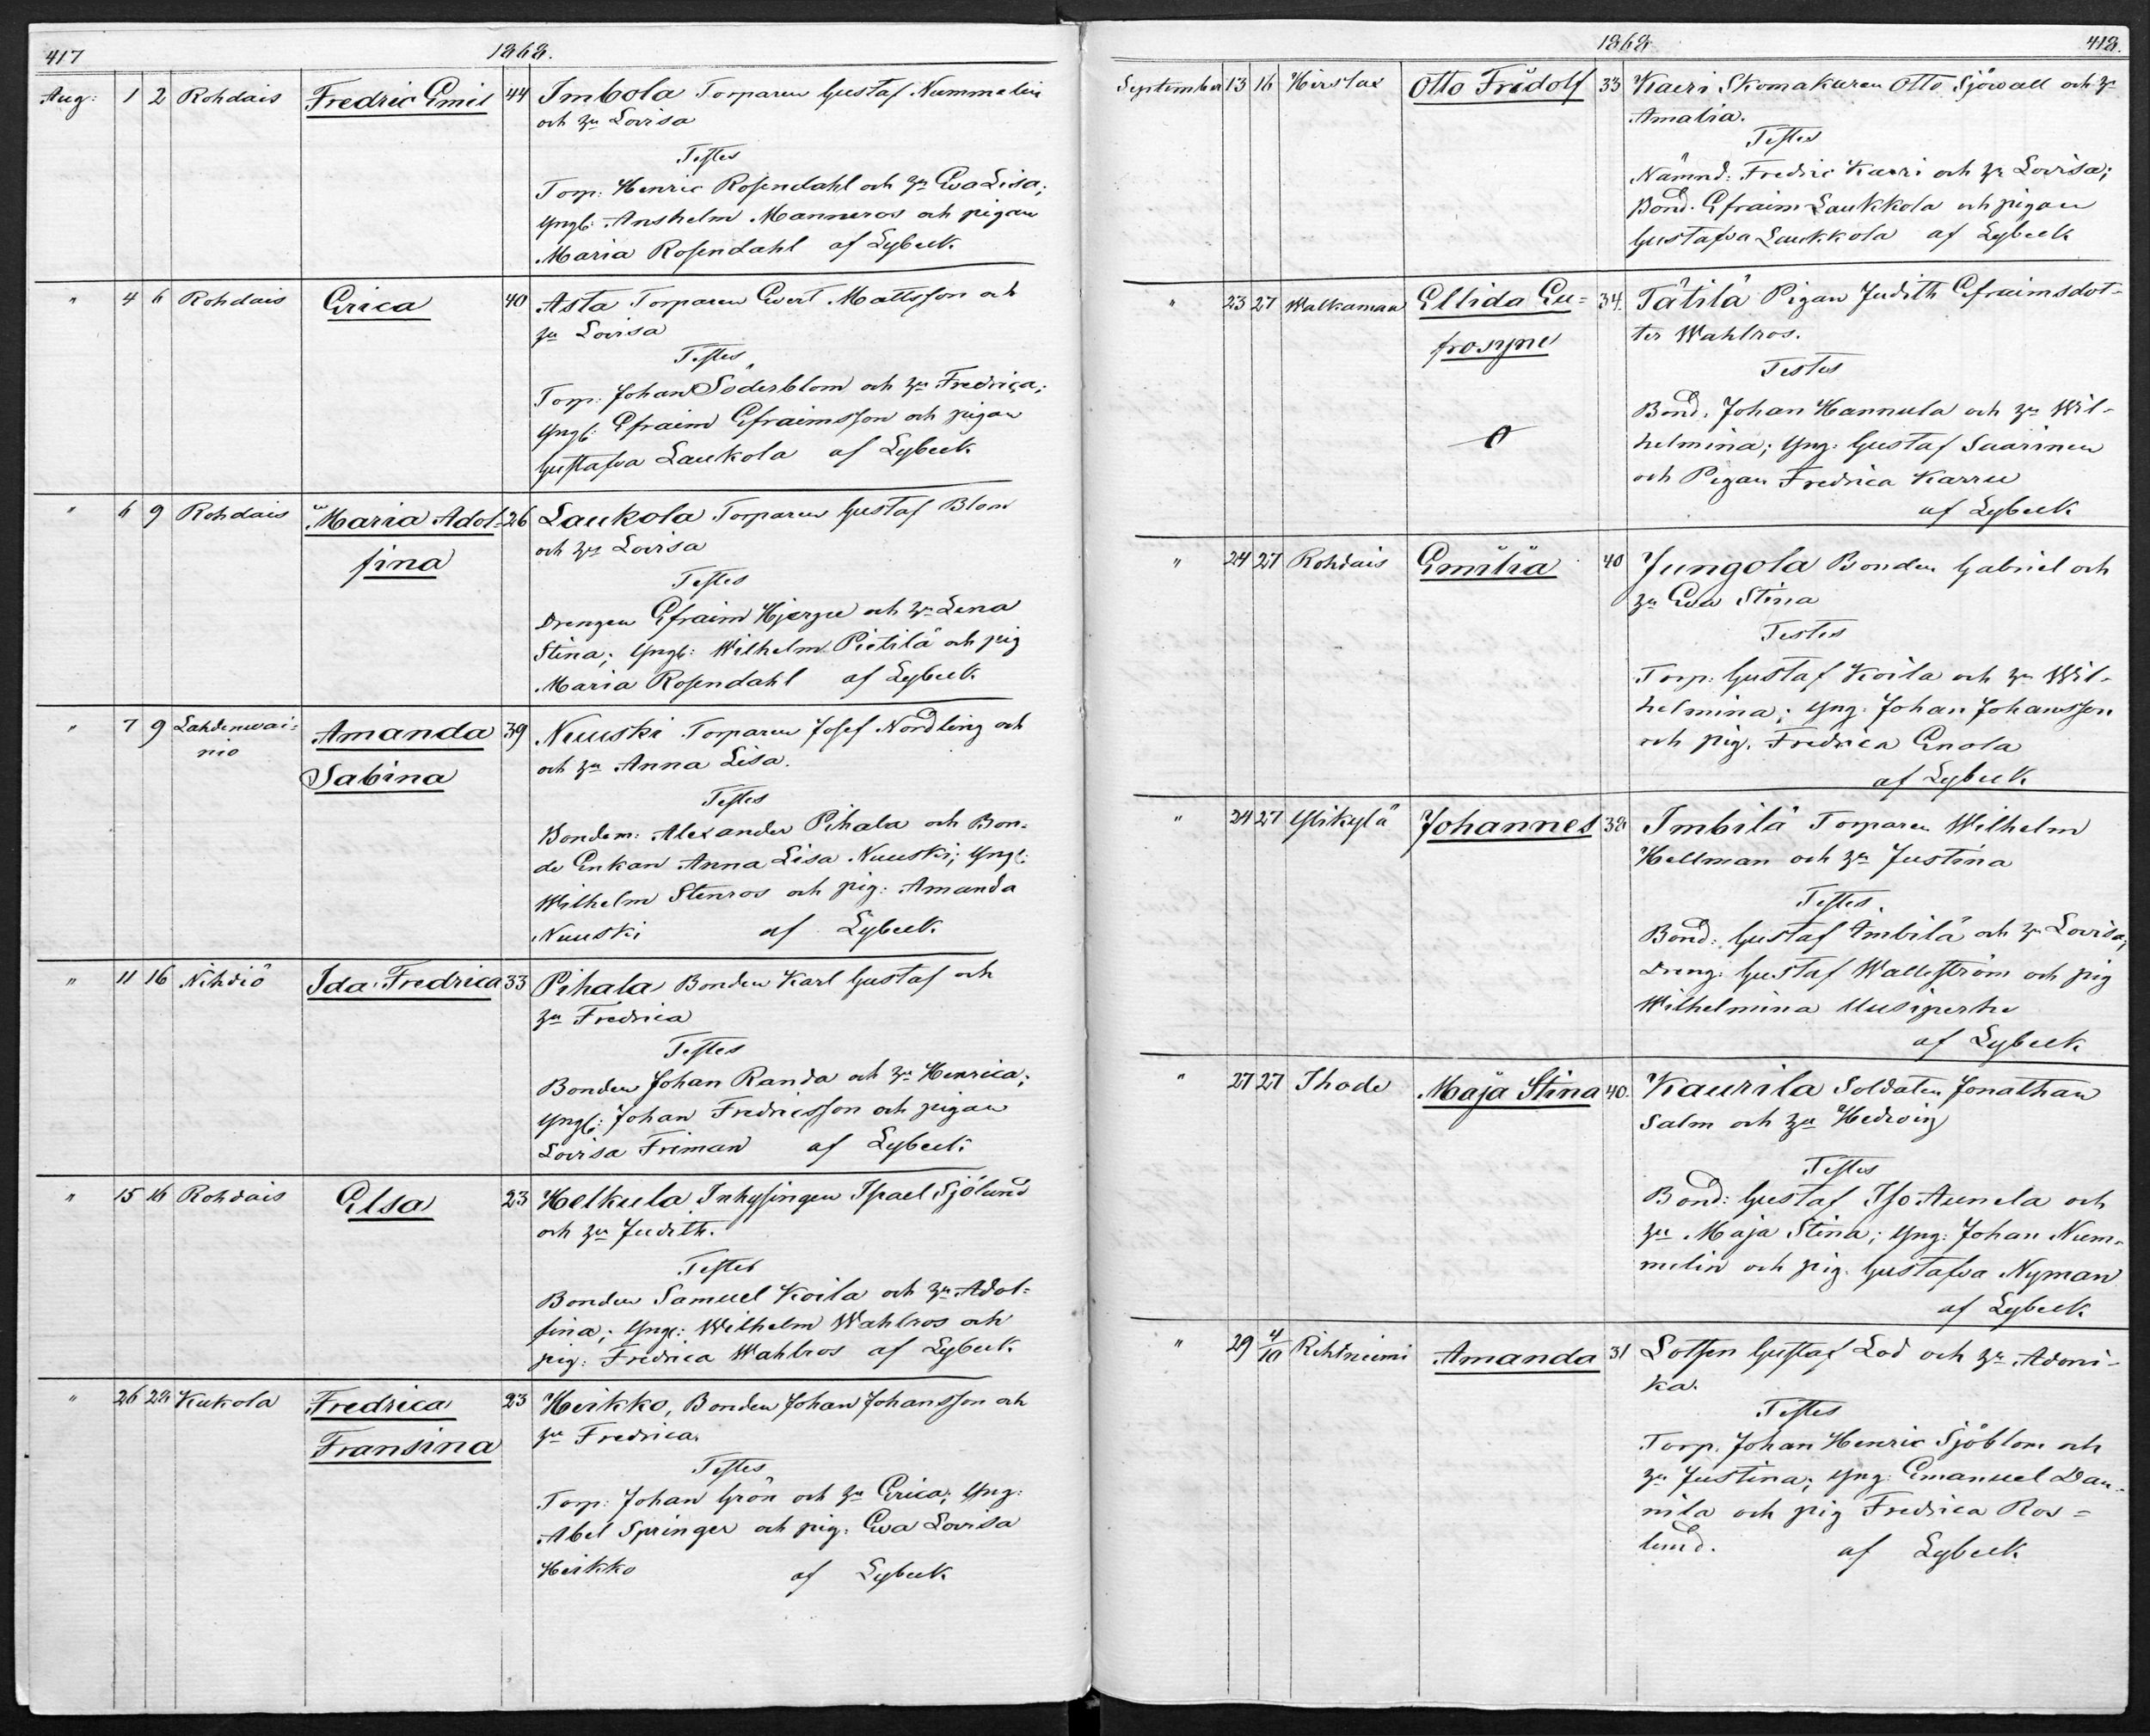 417
1868.
Aug: 1 2 Rohdais Fredric Emil 44 Imbola Torparen Gustaf Nummelin
och hu Lovisa
Testes
Torp: Henric Rosendahl och hu Eva Lisa;
Yngl: Anshelm Manneros och pigan
Maria Rosendahl af Lybeck
" 4 6 Rohdais Erica 40 Asta Torparen Evert Mattsson och
hu Lovisa
Testes
Torp: Johan Söderblom och hu Fredrica;
Yngl: Efraim Efraimsson och pigan
Gustafva Laukola af Lybeck
" 6 9 Rohdais Maria Adol- 26 Laukola Torparen Gustaf Blom
fina och hu Lovisa
Testes
Drengen Efraim Hjerpe och hu Lena
Stina; Yngl: Wilhelm Pietilä och pig
Maria Rosendahl af Lybeck
" 7 9 Lahdenwai= Amanda 39 Nuuski Torparen Josef Nordling och
nio Sabina och hu Anna Lisa.
Testes
Bondem: Alexander Pihala och Bon-
de Enkan Anna Lisa Nuuski; Yngl:
Wilhelm Stenros och pig: Amanda
Nuuski af Lybeck
" 11 16 Nihdiö Ida Fredrica 33 Pihala Bonden Karl Gustaf och
hu Fredrica
Testes
Bonden Johan Randa och hu Henrica;
Yngl: Johan Fredricsson och pigan
Lovisa Friman af Lybeck
" 15 16 Rohdais Elsa 23 Helkula Inhysingen Israel Sjölund
och hu Judith.
Testes
Bonden Samuel Koila och hu Adol=
fina; Yngl: Wilhelm Wahlros och
pig: Fredrica Wahlros af Lybeck
" 26 28 Kukola Fredrica 23 Heikko, Bonden Johan Johansson och
Fransina hu Fredrica.
Testes
Torp: Johan Grön och hu Erica; Yng:
Abel Springer och pig: Eva Lovisa
Heikko af Lybeck
1868 418.
September 13 16 Hirslax Otto Fridolf 33 Kaeri Skomakaren Otto Sjöwall och hu
Amalia.
Testes
Nämnd: Fredric Kaeri och hu Lovisa;
Bond. Efraim Laukkola och pigan
Gustafva Laukkola af Lybeck
" 23 27 Walkamaa Ellida Eu= 34. Tätilä Pigan Judith Efraimsdot-
frosyne ter Wahlros.
Testes
Bond. Johan Hannula och hu Wil-
helmina; Yng: Gustaf Saarinen
och Pigan Fredrica Karru
af Lybeck
" 24 27 Rohdais Emilia 40 Jungola Bonden Gabriel och
hu Eva Stina
Testes
Torp: Gustaf Koila och hu Wil-
helmina; Yng: Johan Johansson
och pig. Fredrica Enola
af Lybeck
" 24 27 Ylikylä Johannes 38 Imbilä Torparen Wilhelm
Hellman och hu Justina
Testes.
Bond: Gustaf Imbilä och hu Lovisa;
Dreng: Gustaf Wallström och pig
Wilhelmina Uusiperhe
af Lybeck
" 27 27 Ihode Maja Stina 40. Kaurila Soldaten Jonathan
Salm och hu Hedvig
Testes
Bond: Gustaf Iso Aunela och
hu Maja Stina; Yng: Johan Num-
melin och pig. Gustafva Nyman
af Lybeck
" 29 4/10 Rihtniemi Amanda 31 Lotsen Gustaf Lod och hu Adoni-
ka.
Testes
Torp. Johan Henric Sjöblom och
hu Justina; Yng: Emanuel Dan-
nila och pig Fredrica Ros=
lund. af Lybeck